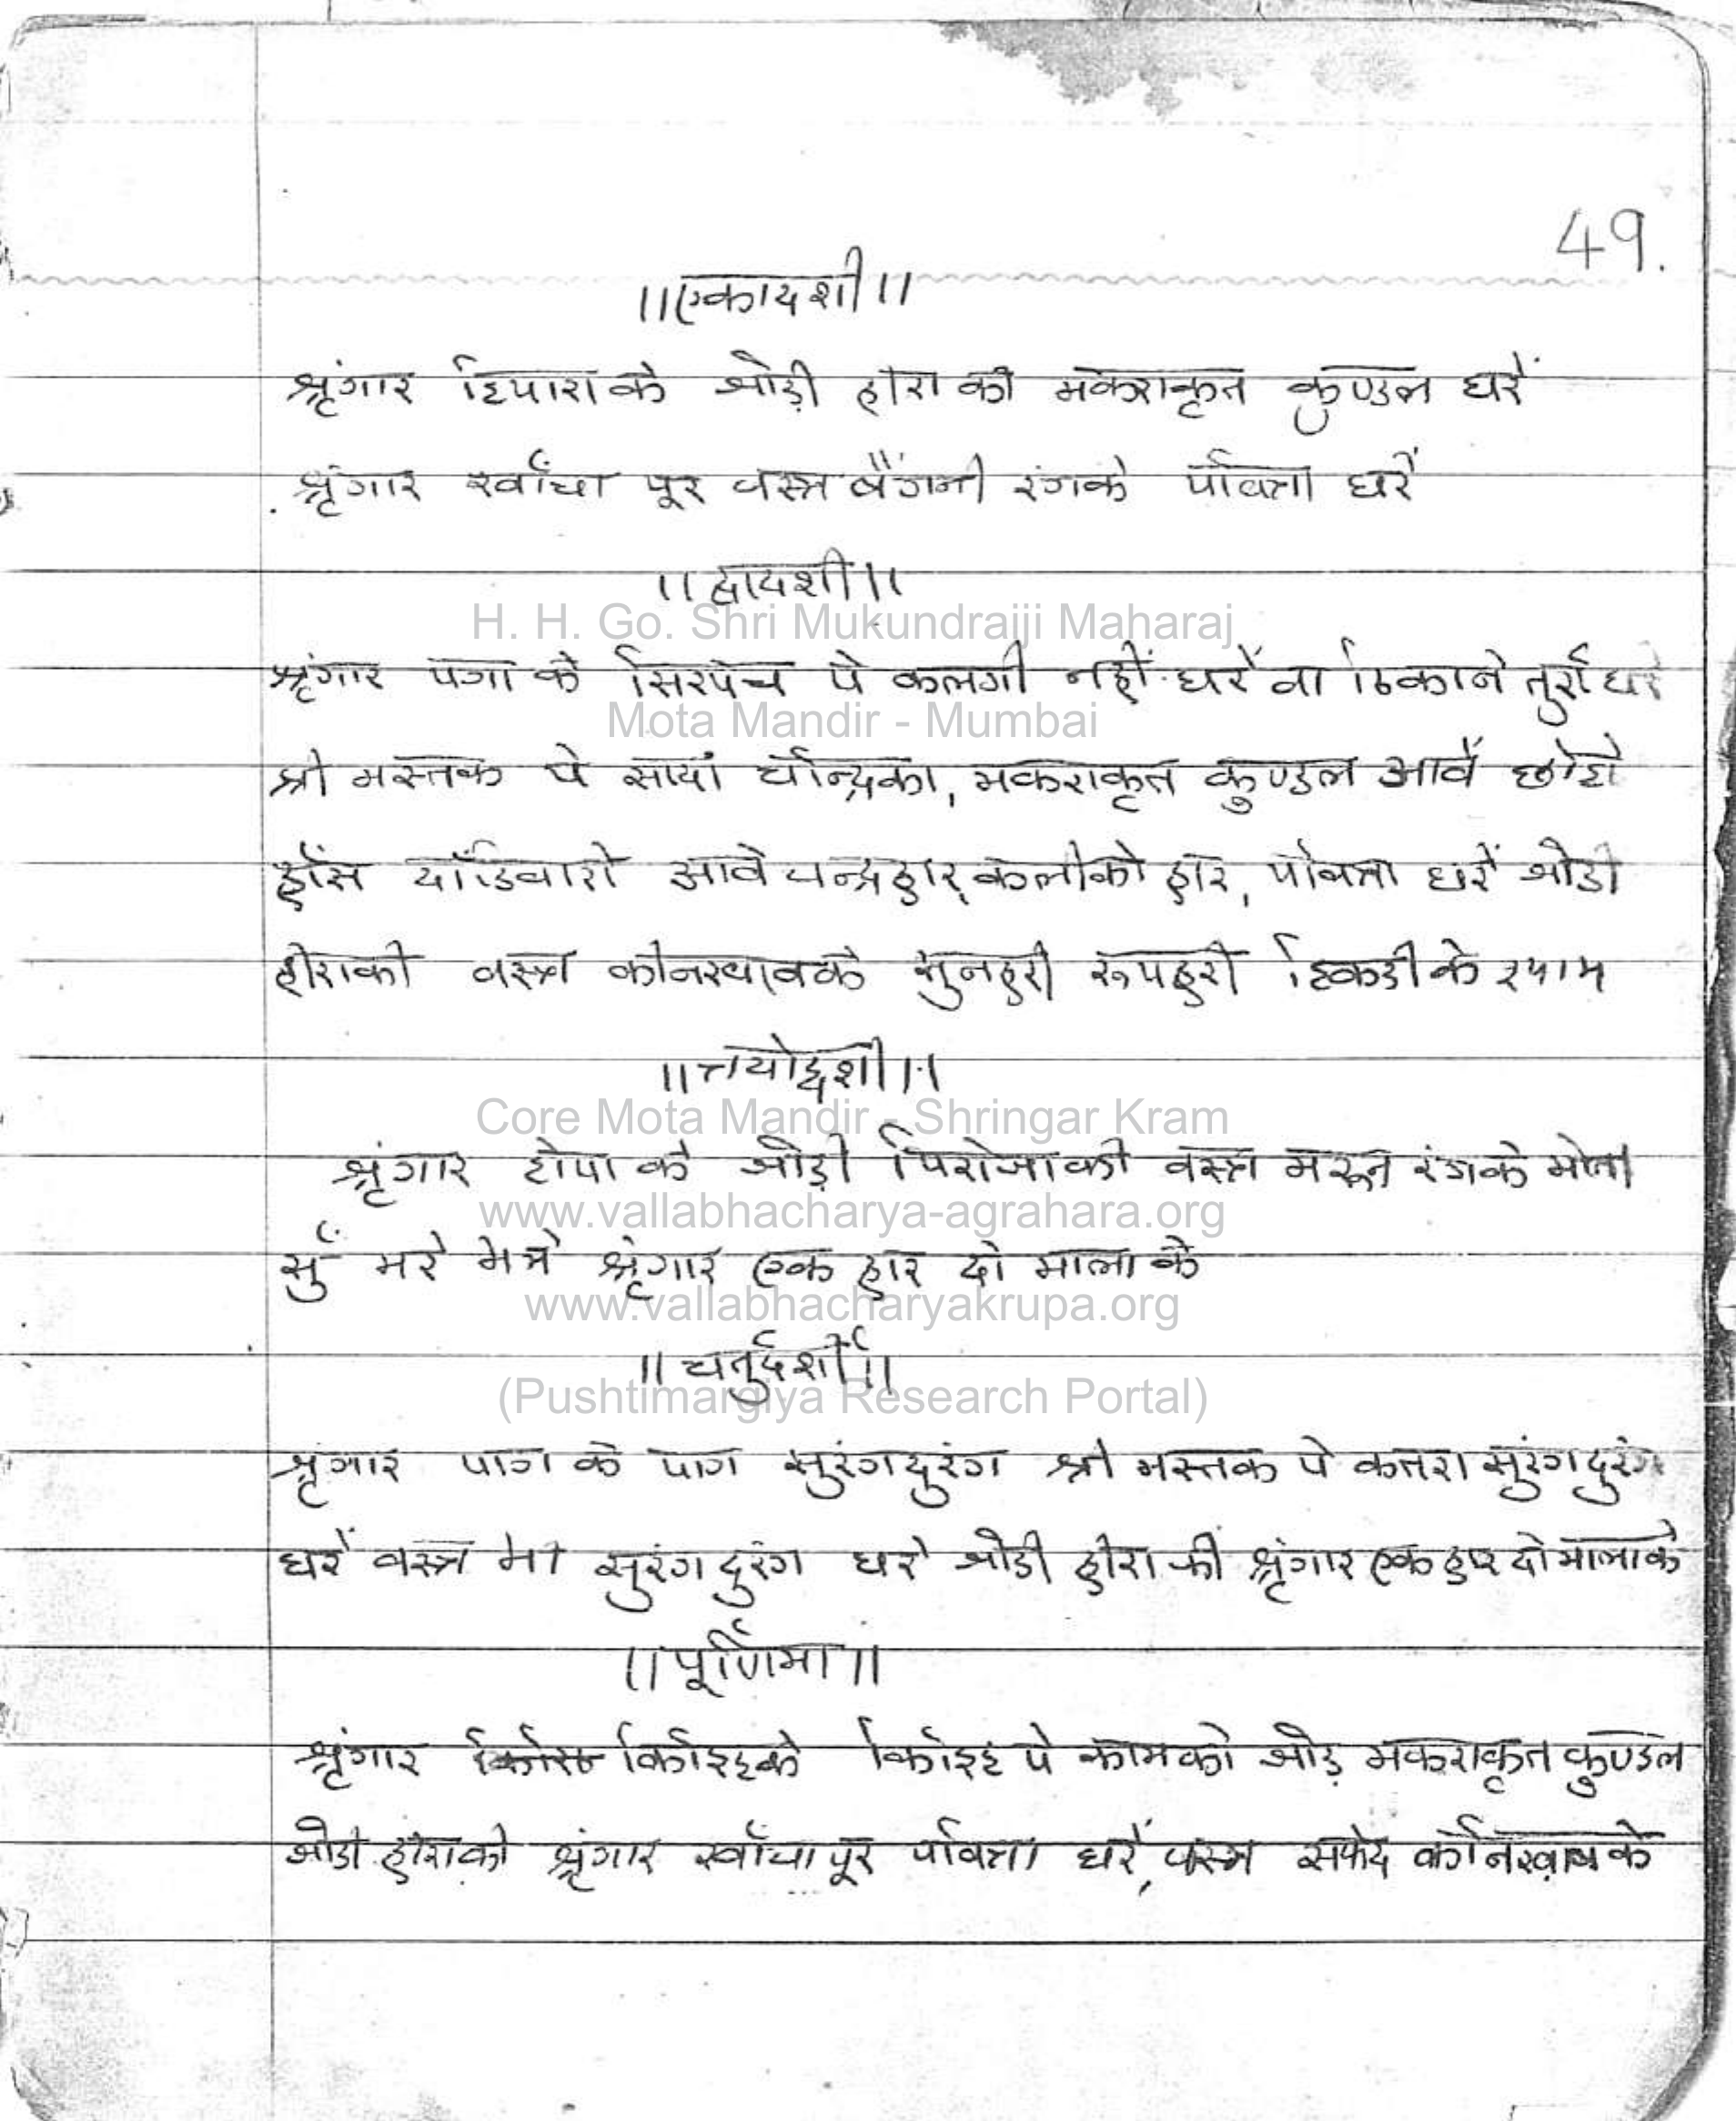 49.
।।एकादशी।।
श्रृंगार टिपाराके जोड़ी हीरा की मकराकृत कुण्डल धरें
श्रृंगार खाँचा पूर वस्त्र बैंगनी रंगके पवित्रा धरें
।। द्वादशी।।
H. H. Go. Shri Mukundraiji Maharaj
श्रृंगार पगा के सिरपेच पे कलगी नहीं धरें वा ठिकाने तुर्रा धरे
Mota Mandir - Mumbai
श्री मस्तक पे सादा चन्द्रिका, मकराकृत कुण्डल आवें छोटो
हाँस दाँडिवारो आवे चन्द्रहार, कलीको हार, पवित्रा धरें जोडी
हीराकी वस्त्र कीनखाबके सुनहरी रूपहरी टिकडी के श्याम
।।त्रयोद्दशी।।
Core Mota Mandir - Shringar Kram
श्रृंगार टोपा के जोड़ी पिरोजाकी वस्त्र मरून रंगके मोती
www.vallabhacharya-agrahara.org
सुं भरे भये श्रृंगार एक हार दो माला के
www.vallabhacharyakrupa.org
।। चतुर्दशी ।।
(Pushtimargiya Research Portal)
श्रृंगार पाग के पाग सुरंगदुरंग श्री मस्तक पे कतरा सुरंगदुरंग
धरें वस्त्र भी सुरंग दुरंग धरें जोडी हीरा की श्रृंगार एक हार दो मालाके
।।पूर्णिमा।।
श्रृंगार किरीटके किरीट पे कामको जोड़ मकराकृत कुण्डल
जोडी हीराकी श्रृंगार खाँचा पूर पवित्रा धरें, वस्त्र सफेद कीनखाब के